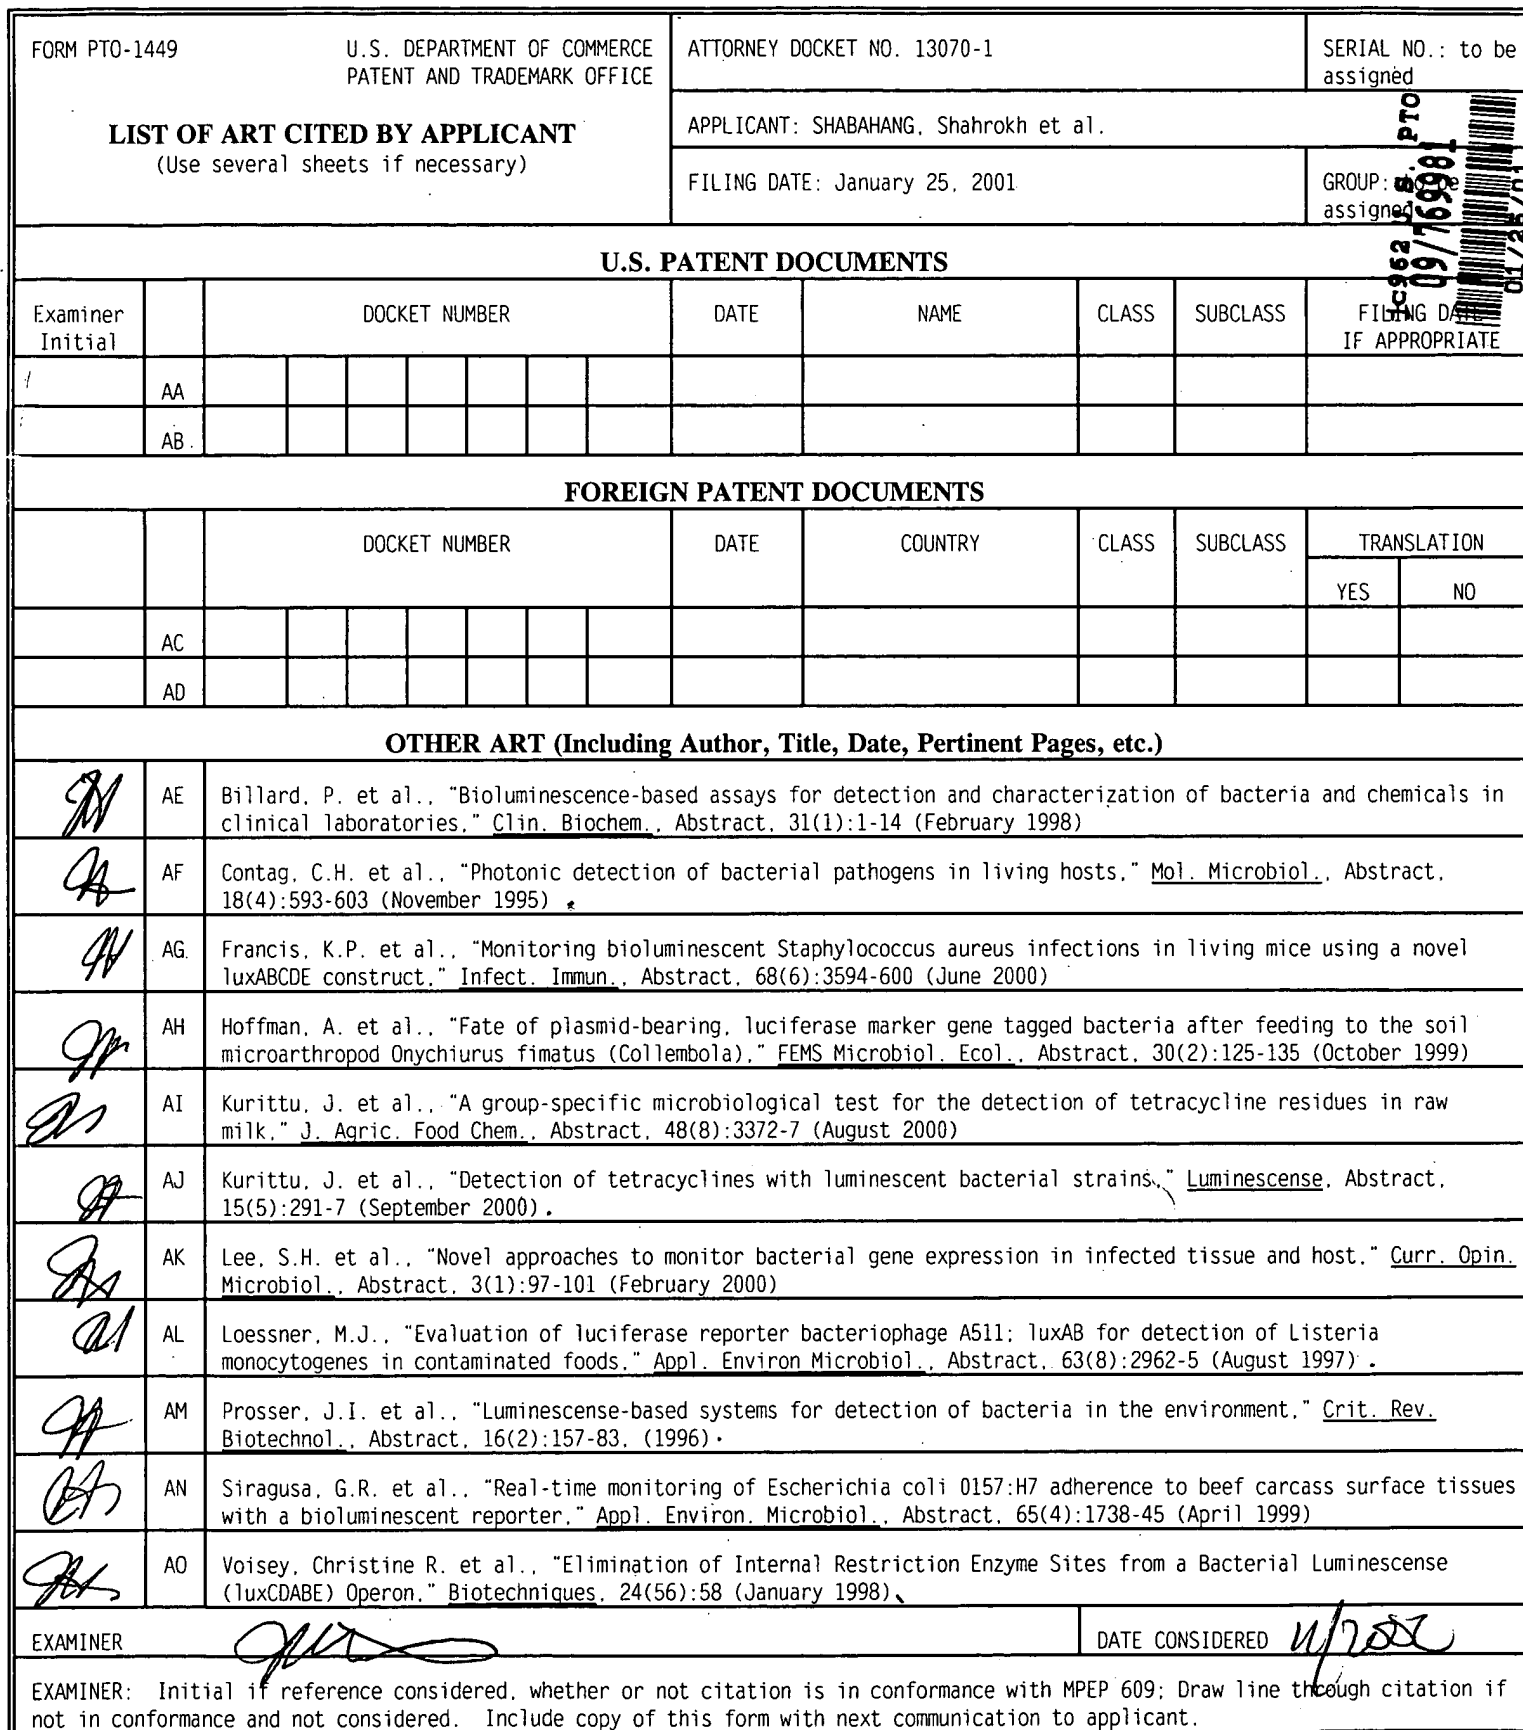 FORM PTO-1449
U.S. DEPARTMENT OF COMMERCE
PATENT AND TRADEMARK OFFICE
LIST OF ART CITED BY APPLICANT
(Use several sheets if necessary)
ATTORNEY DOCKET NO. 13070-1
SERIAL NO.: to be
assigned
APPLICANT: SHABAHANG, Shahrokh et al.
FILING DATE: January 25, 2001
GROUP: to be
assigned
c962 U.S. PTO
09/769981
01/25/01
U.S. PATENT DOCUMENTS
Examiner
Initial
DOCKET NUMBER
DATE
NAME
CLASS
SUBCLASS
FILING DATE
IF APPROPRIATE
AA
AB
FOREIGN PATENT DOCUMENTS
DOCKET NUMBER
DATE
COUNTRY
CLASS
SUBCLASS
TRANSLATION
YES
NO
AC
AD
OTHER ART (Including Author, Title, Date, Pertinent Pages, etc.)
AE
Billard, P. et al., "Bioluminescence-based assays for detection and characterization of bacteria and chemicals in
clinical laboratories," Clin. Biochem., Abstract, 31(1):1-14 (February 1998)
AF
Contag, C.H. et al., "Photonic detection of bacterial pathogens in living hosts," Mol. Microbiol., Abstract,
18(4):593-603 (November 1995)
AG
Francis, K.P. et al., "Monitoring bioluminescent Staphylococcus aureus infections in living mice using a novel
luxABCDE construct," Infect. Immun., Abstract, 68(6):3594-600 (June 2000)
AH
Hoffman, A. et al., "Fate of plasmid-bearing, luciferase marker gene tagged bacteria after feeding to the soil
microarthropod Onychiurus fimatus (Collembola)," FEMS Microbiol. Ecol., Abstract, 30(2):125-135 (October 1999)
AI
Kurittu, J. et al., "A group-specific microbiological test for the detection of tetracycline residues in raw
milk," J. Agric. Food Chem., Abstract, 48(8):3372-7 (August 2000)
AJ
Kurittu, J. et al., "Detection of tetracyclines with luminescent bacterial strains," Luminescense, Abstract,
15(5):291-7 (September 2000).
AK
Lee, S.H. et al., "Novel approaches to monitor bacterial gene expression in infected tissue and host," Curr. Opin.
Microbiol., Abstract, 3(1):97-101 (February 2000)
AL
Loessner, M.J., "Evaluation of luciferase reporter bacteriophage A511; luxAB for detection of Listeria
monocytogenes in contaminated foods," Appl. Environ Microbiol., Abstract, 63(8):2962-5 (August 1997).
AM
Prosser, J.I. et al., "Luminescense-based systems for detection of bacteria in the environment," Crit. Rev.
Biotechnol., Abstract, 16(2):157-83, (1996).
AN
Siragusa, G.R. et al., "Real-time monitoring of Escherichia coli 0157:H7 adherence to beef carcass surface tissues
with a bioluminescent reporter," Appl. Environ. Microbiol., Abstract, 65(4):1738-45 (April 1999)
AO
Voisey, Christine R. et al., "Elimination of Internal Restriction Enzyme Sites from a Bacterial Luminescense
(luxCDABE) Operon," Biotechniques, 24(56):58 (January 1998)
EXAMINER
DATE CONSIDERED
EXAMINER: Initial if reference considered, whether or not citation is in conformance with MPEP 609; Draw line through citation if
not in conformance and not considered. Include copy of this form with next communication to applicant.